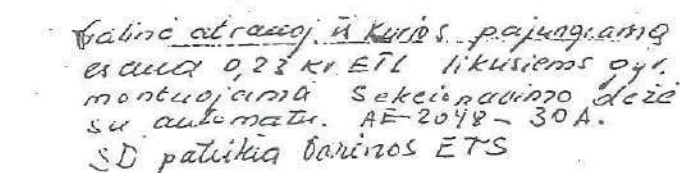 Galinė atramoj iš kurios pajungiama
esama 0,23 kv ETL likusiems gyv.
montuojama sekcionavimo dėžė
su automatu. AE-2048-30A.
SD patiekia Varėnos ETS